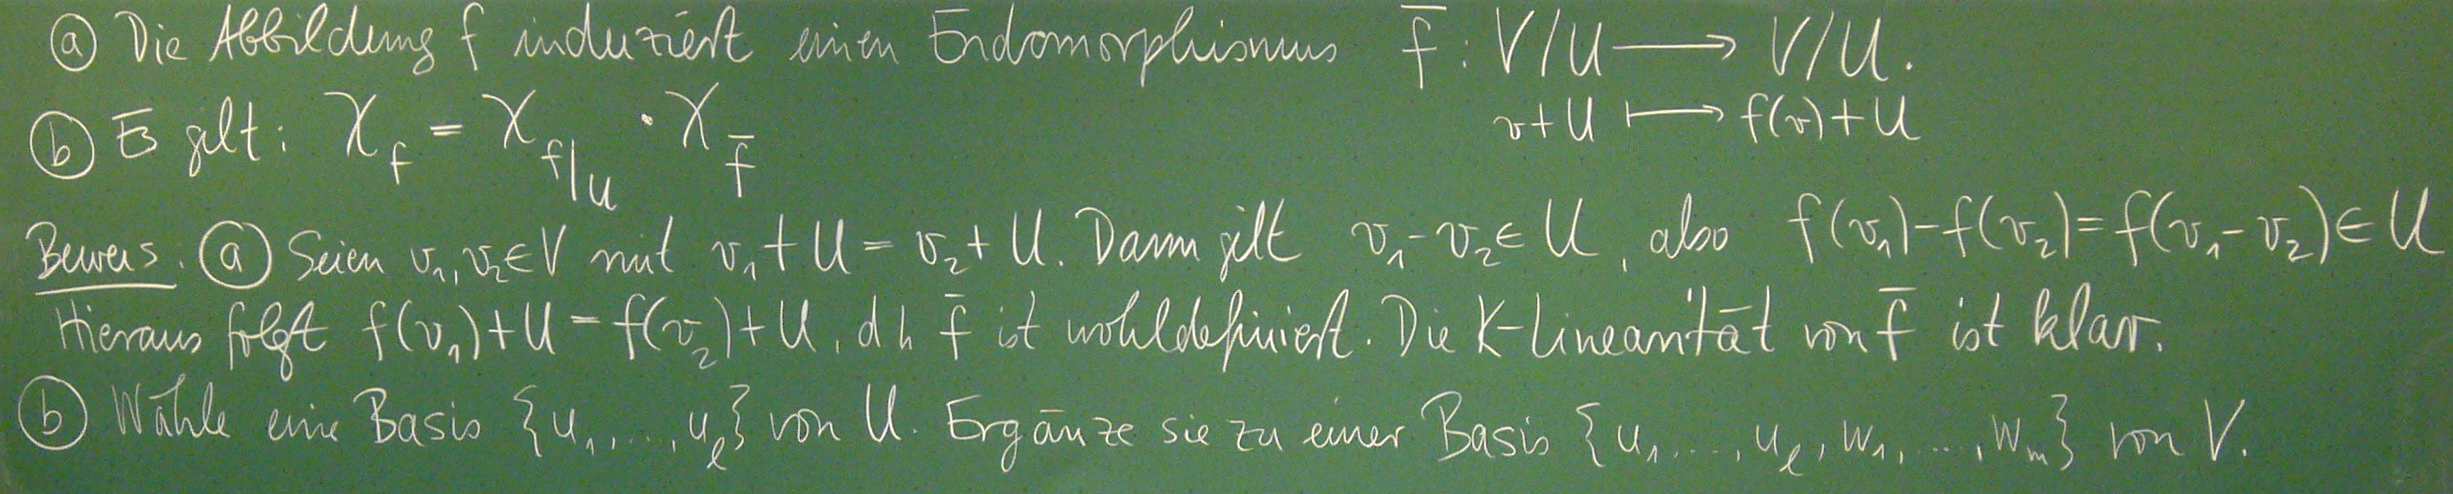 ⓐ Die Abbildung f induziert einen Endomorphismus f̄ : V/U ⟶ V/U.
v+U ⟼ f(v)+U
ⓑ Es gilt: χ_f = χ_{f|U} · χ_f̄
Beweis. ⓐ Seien v₁, v₂ ∈ V mit v₁ + U = v₂ + U. Dann gilt v₁ - v₂ ∈ U, also f(v₁) - f(v₂) = f(v₁ - v₂) ∈ U
Hieraus folgt f(v₁) + U = f(v₂) + U, d h f̄ ist wohldefiniert. Die K-Linearität von f̄ ist klar.
ⓑ Wähle eine Basis {u₁, ..., u_ℓ} von U. Ergänze sie zu einer Basis {u₁, ..., u_ℓ, w₁, ..., w_m} von V.